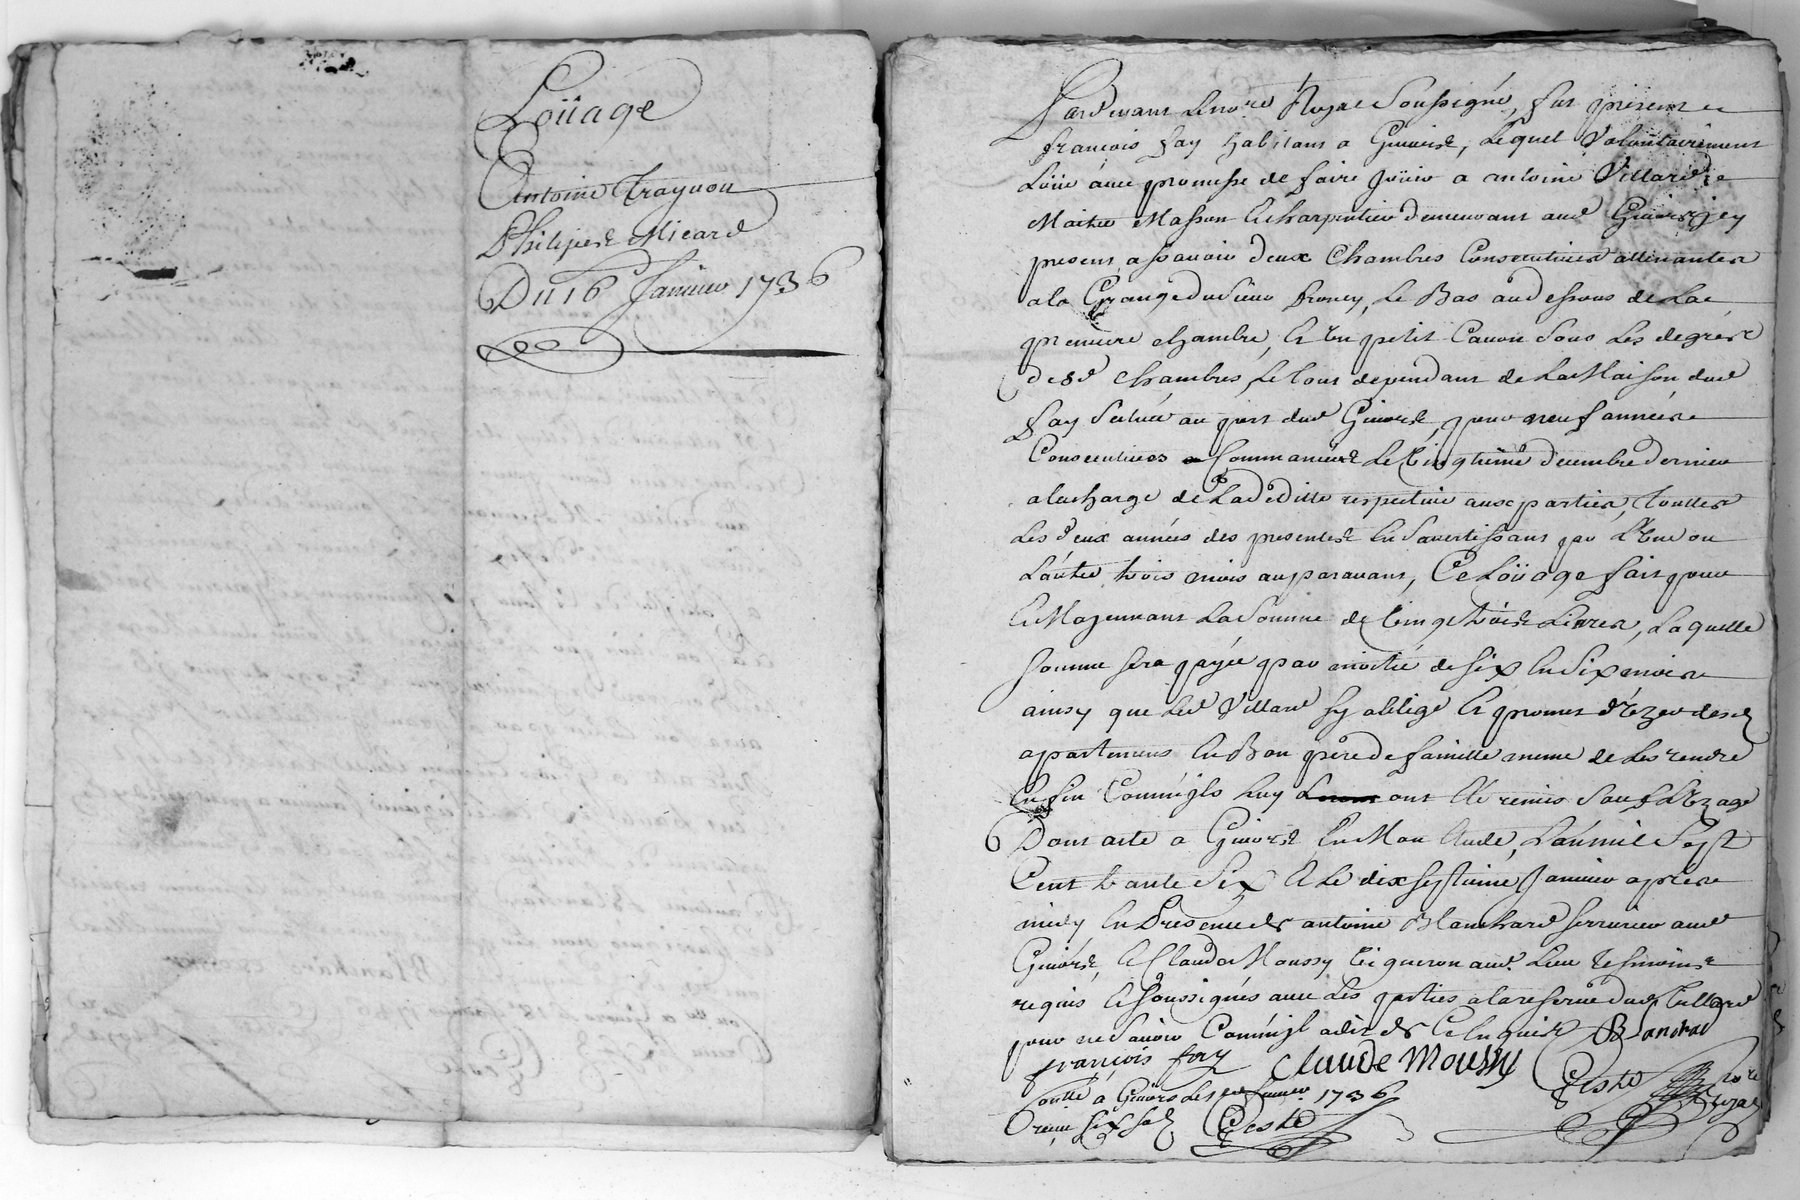 Loüage
Antoine Traynou
Philipes Micard
Du 16 Janvier 1736
Pardevant le no.re Royal soussigné, fut present
françois fay habitant a Givors, lequel volontairement
Loüe avec promesse de faire joüir a antoine Villard
Maitre Masson & charpentier demeurant aud Givors jcy
present, assavoir deux chambres Consecutives attenantes
a la Grange du sieur Roney, le Bas au dessous de la
premiere chambre, & un petit Cavon sous les degrés
desd chambres, le tout dependant de la Maison dud
fay située au port dud Givors pour neuf années
Consecutives Commancées le vingtieme decembre dernier
a la charge de la deditte respective aux parties, touttes
les deux années des presentes en s'avertissant par l'une ou
l'autre trois mois auparavant, Ce Loüage fait pour
& Moyennant la somme de vingt trois Livres, laquelle
somme sera payée par moitié de six en six mois
ainsy que led Villard sy oblige & promet d'uzer desd
apartemens en Bon pere de famille meme de les rendre
en fin Comm'jls luy ont été remis sauf l'uzage
Dont acte a Givors en Mon etude, l'an mil sept
Cent trante six & le dix septieme Janvier apres
midy en presence de antoine Blanchard serrurier aud
Givors, & Claude Moussy vigneron aud. lieu tesmoins
requis & soussignés avec les parties a la reserve dud Villard
pour ne savoir Comm'jl a dit de ce enquis Blanchard
françois fay Claude Moussy Geste No.re Royal
Conllé a Givors le Janvier 1736
Receu six sols Geste